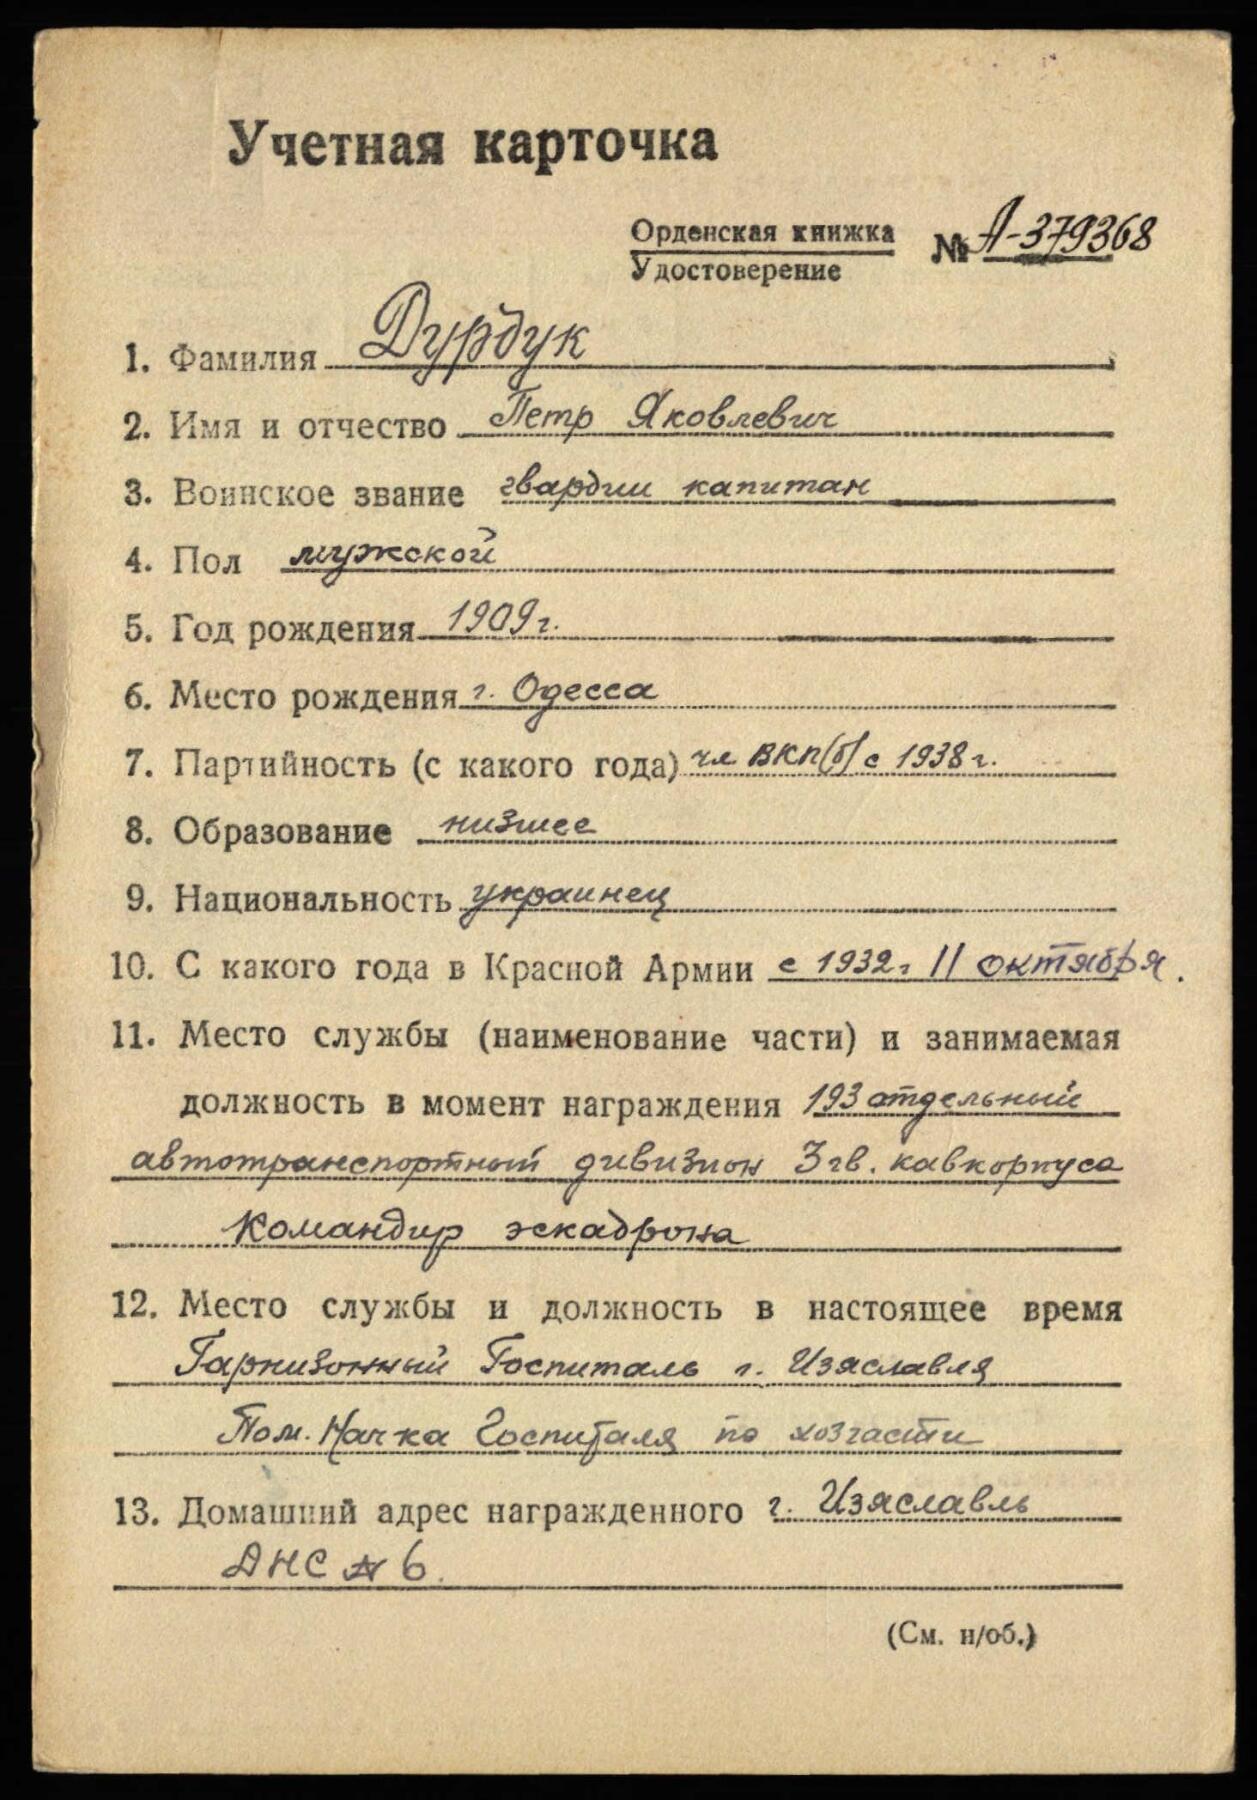 Учетная карточка
Орденская книжка
Удостоверение
№ А-379368
1. Фамилия Дурдук
2. Имя и отчество Петр Яковлевич
3. Воинское звание гвардии капитан
4. Пол мужской
5. Год рождения 1909 г.
6. Место рождения г. Одесса
7. Партийность (с какого года) чл ВКП(б) с 1938 г.
8. Образование низшее
9. Национальность украинец
10. С какого года в Красной Армии с 1932 г 11 октября.
11. Место службы (наименование части) и занимаемая
должность в момент награждения 193 отдельный
автотранспортный дивизион 3 гв. кавкорпуса
Командир эскадрона
12. Место службы и должность в настоящее время
Гарнизонный Госпиталь г. Изяславля
Пом. Нач-ка Госпиталя по хозчасти
13. Домашний адрес награжденного г. Изяславль
ДНС № 6.
(См. н/об.)